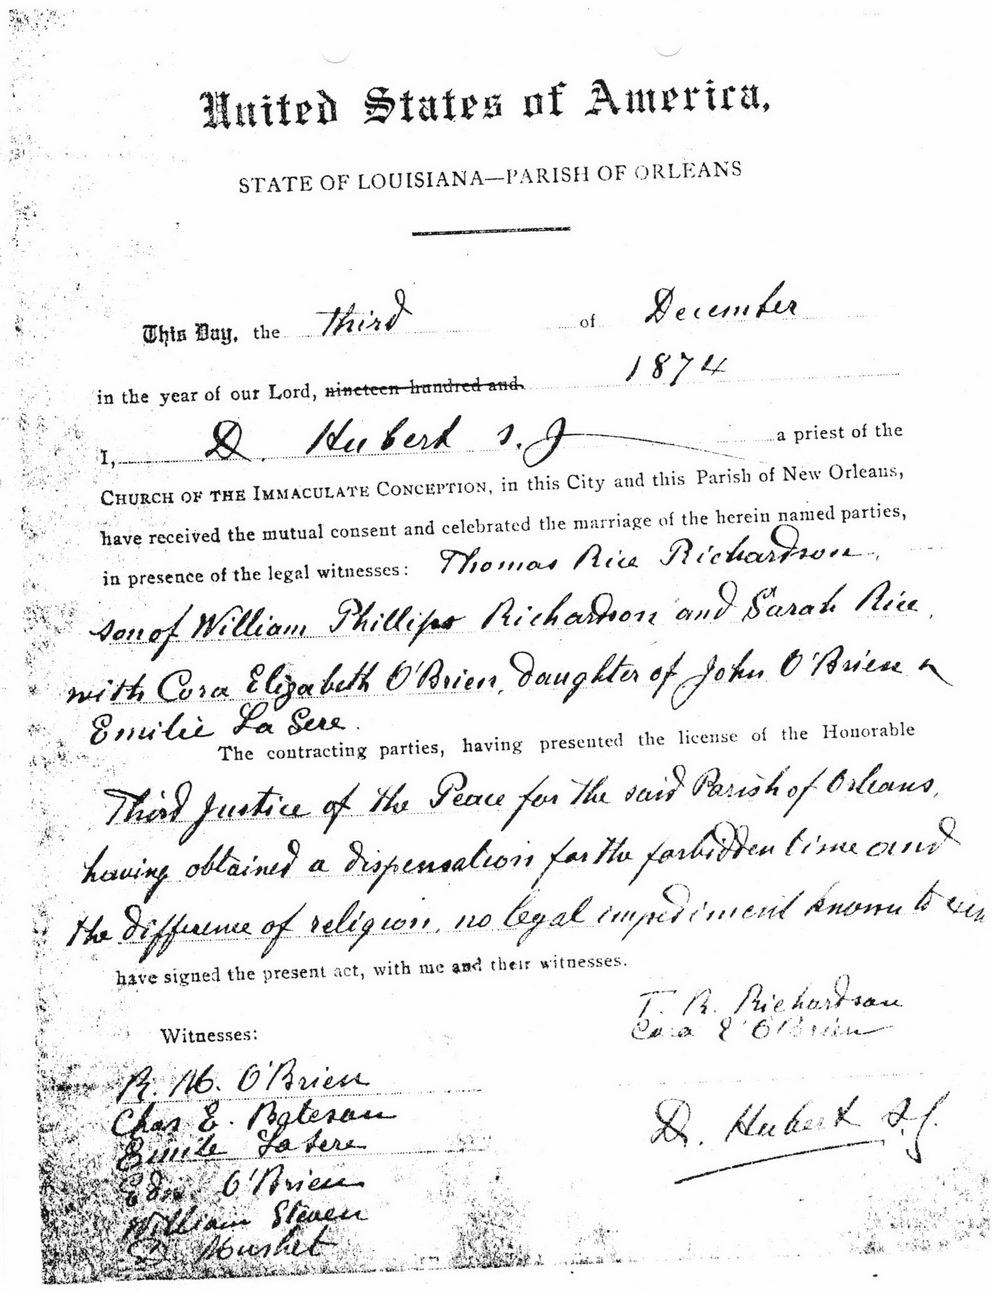 United States of America,
STATE OF LOUISIANA—PARISH OF ORLEANS
This Day, the third of December
in the year of our Lord, nineteen hundred and 1874
I, D. Hubert S. J a priest of the
CHURCH OF THE IMMACULATE CONCEPTION, in this City and this Parish of New Orleans,
have received the mutual consent and celebrated the marriage of the herein named parties,
in presence of the legal witnesses: Thomas Rice Richardson,
son of William Phillips Richardson and Sarah Rice,
with Cora Elizabeth O'Brien, daughter of John O'Brien &
Emilie La Sere.
The contracting parties, having presented the license of the Honorable
Third Justice of the Peace for the said Parish of Orleans,
having obtained a dispensation for the forbidden time and
the difference of religion, no legal impediment known to
have signed the present act, with me and their witnesses.
T. R. Richardson
Cora E O'Brien
Witnesses:
R. M. O'Brien
Chas E. Bateson
Emile La Sere
D. Hubert S.J.
Edw. O'Brien
William Steven
D. Mushet